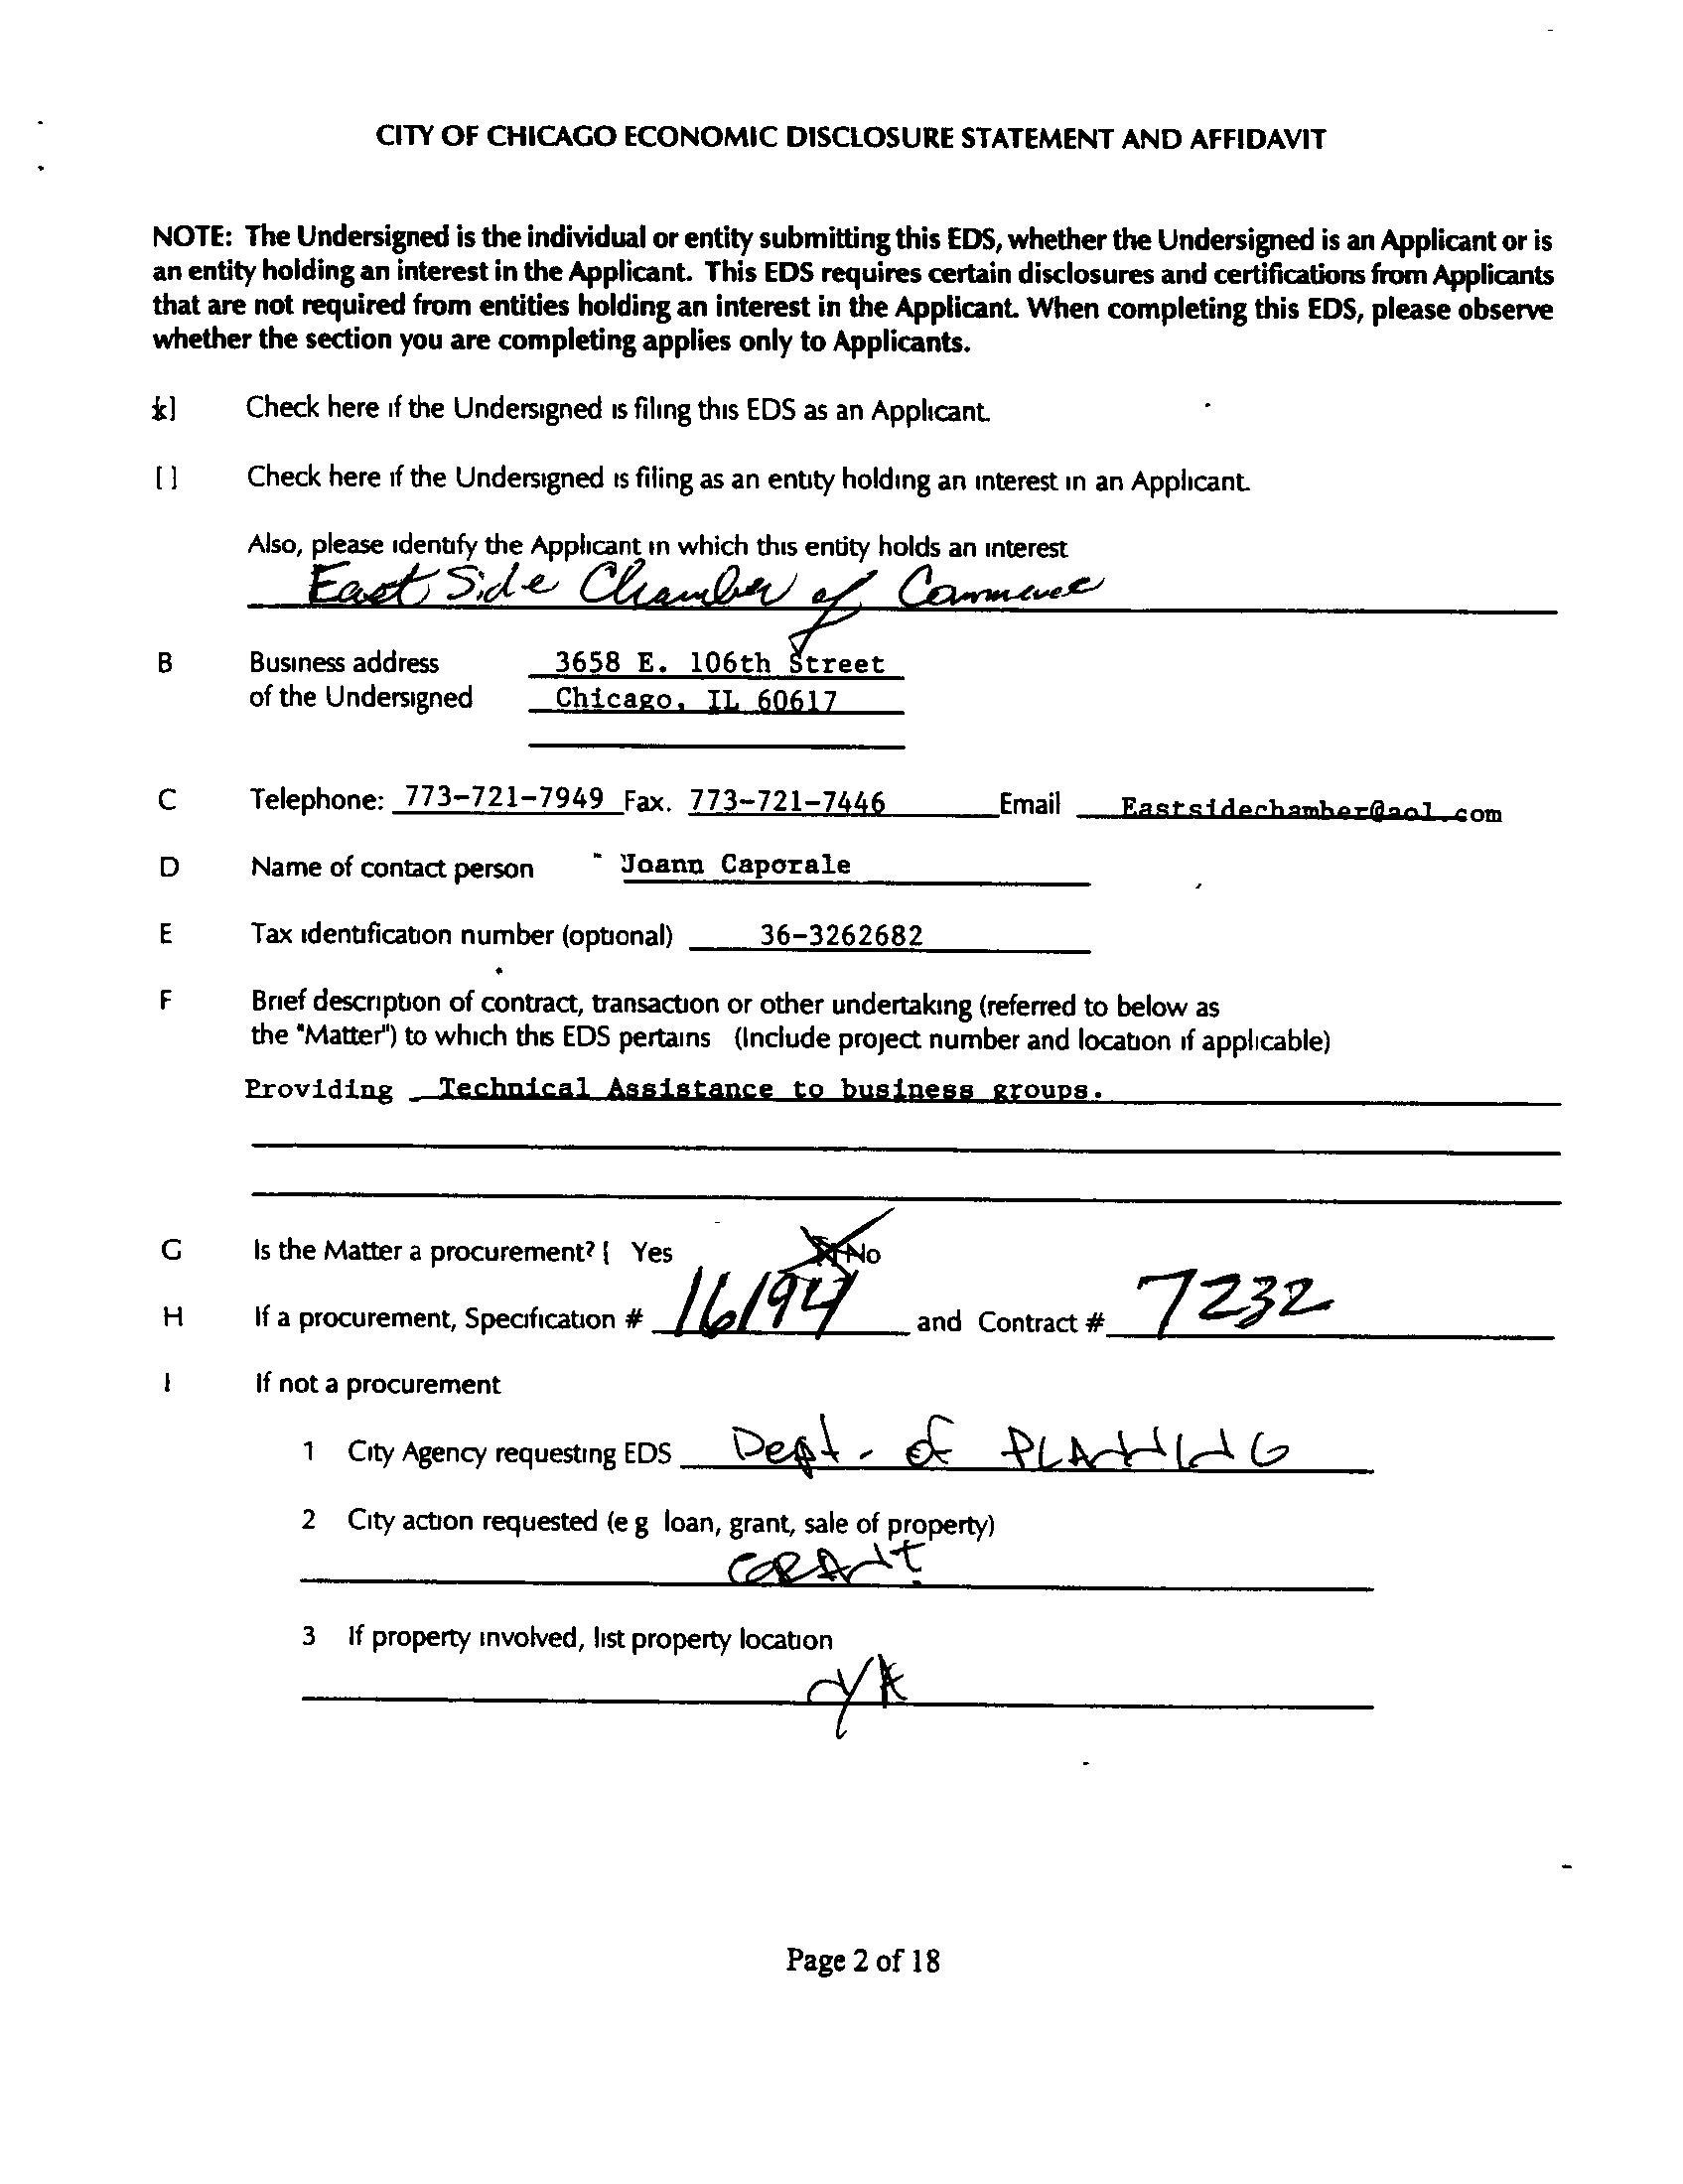 CITY OF CHICAGO ECONOMIC DISCLOSURE STATEMENT AND AFFIDAVIT
NOTE: The Undersigned is the individual or entity submitting this EDS, whether the Undersigned is an Applicant or is
an entity holding an interest in the Applicant. This EDS requires certain disclosures and certifications from Applicants
that are not required from entities holding an interest in the Applicant. When completing this EDS, please observe
whether the section you are completing applies only to Applicants.
[x] Check here if the Undersigned is filing this EDS as an Applicant.
[ ] Check here if the Undersigned is filing as an entity holding an interest in an Applicant.
Also, please identify the Applicant in which this entity holds an interest
East Side Chamber of Commerce
B Business address 3658 E. 106th Street
of the Undersigned Chicago, IL 60617
C Telephone: 773-721-7949 Fax. 773-721-7446 Email Eastsidechamber@aol.com
D Name of contact person Joann Caporale
E Tax identification number (optional) 36-3262682
F Brief description of contract, transaction or other undertaking (referred to below as
the "Matter") to which this EDS pertains (Include project number and location if applicable)
Providing Technical Assistance to business groups.
G Is the Matter a procurement? [ Yes [X] No
H If a procurement, Specification # 16194 and Contract # 7232
I If not a procurement
1 City Agency requesting EDS Dept. of PLANNING
2 City action requested (e g loan, grant, sale of property)
GRANT
3 If property involved, list property location
N/A
Page 2 of 18